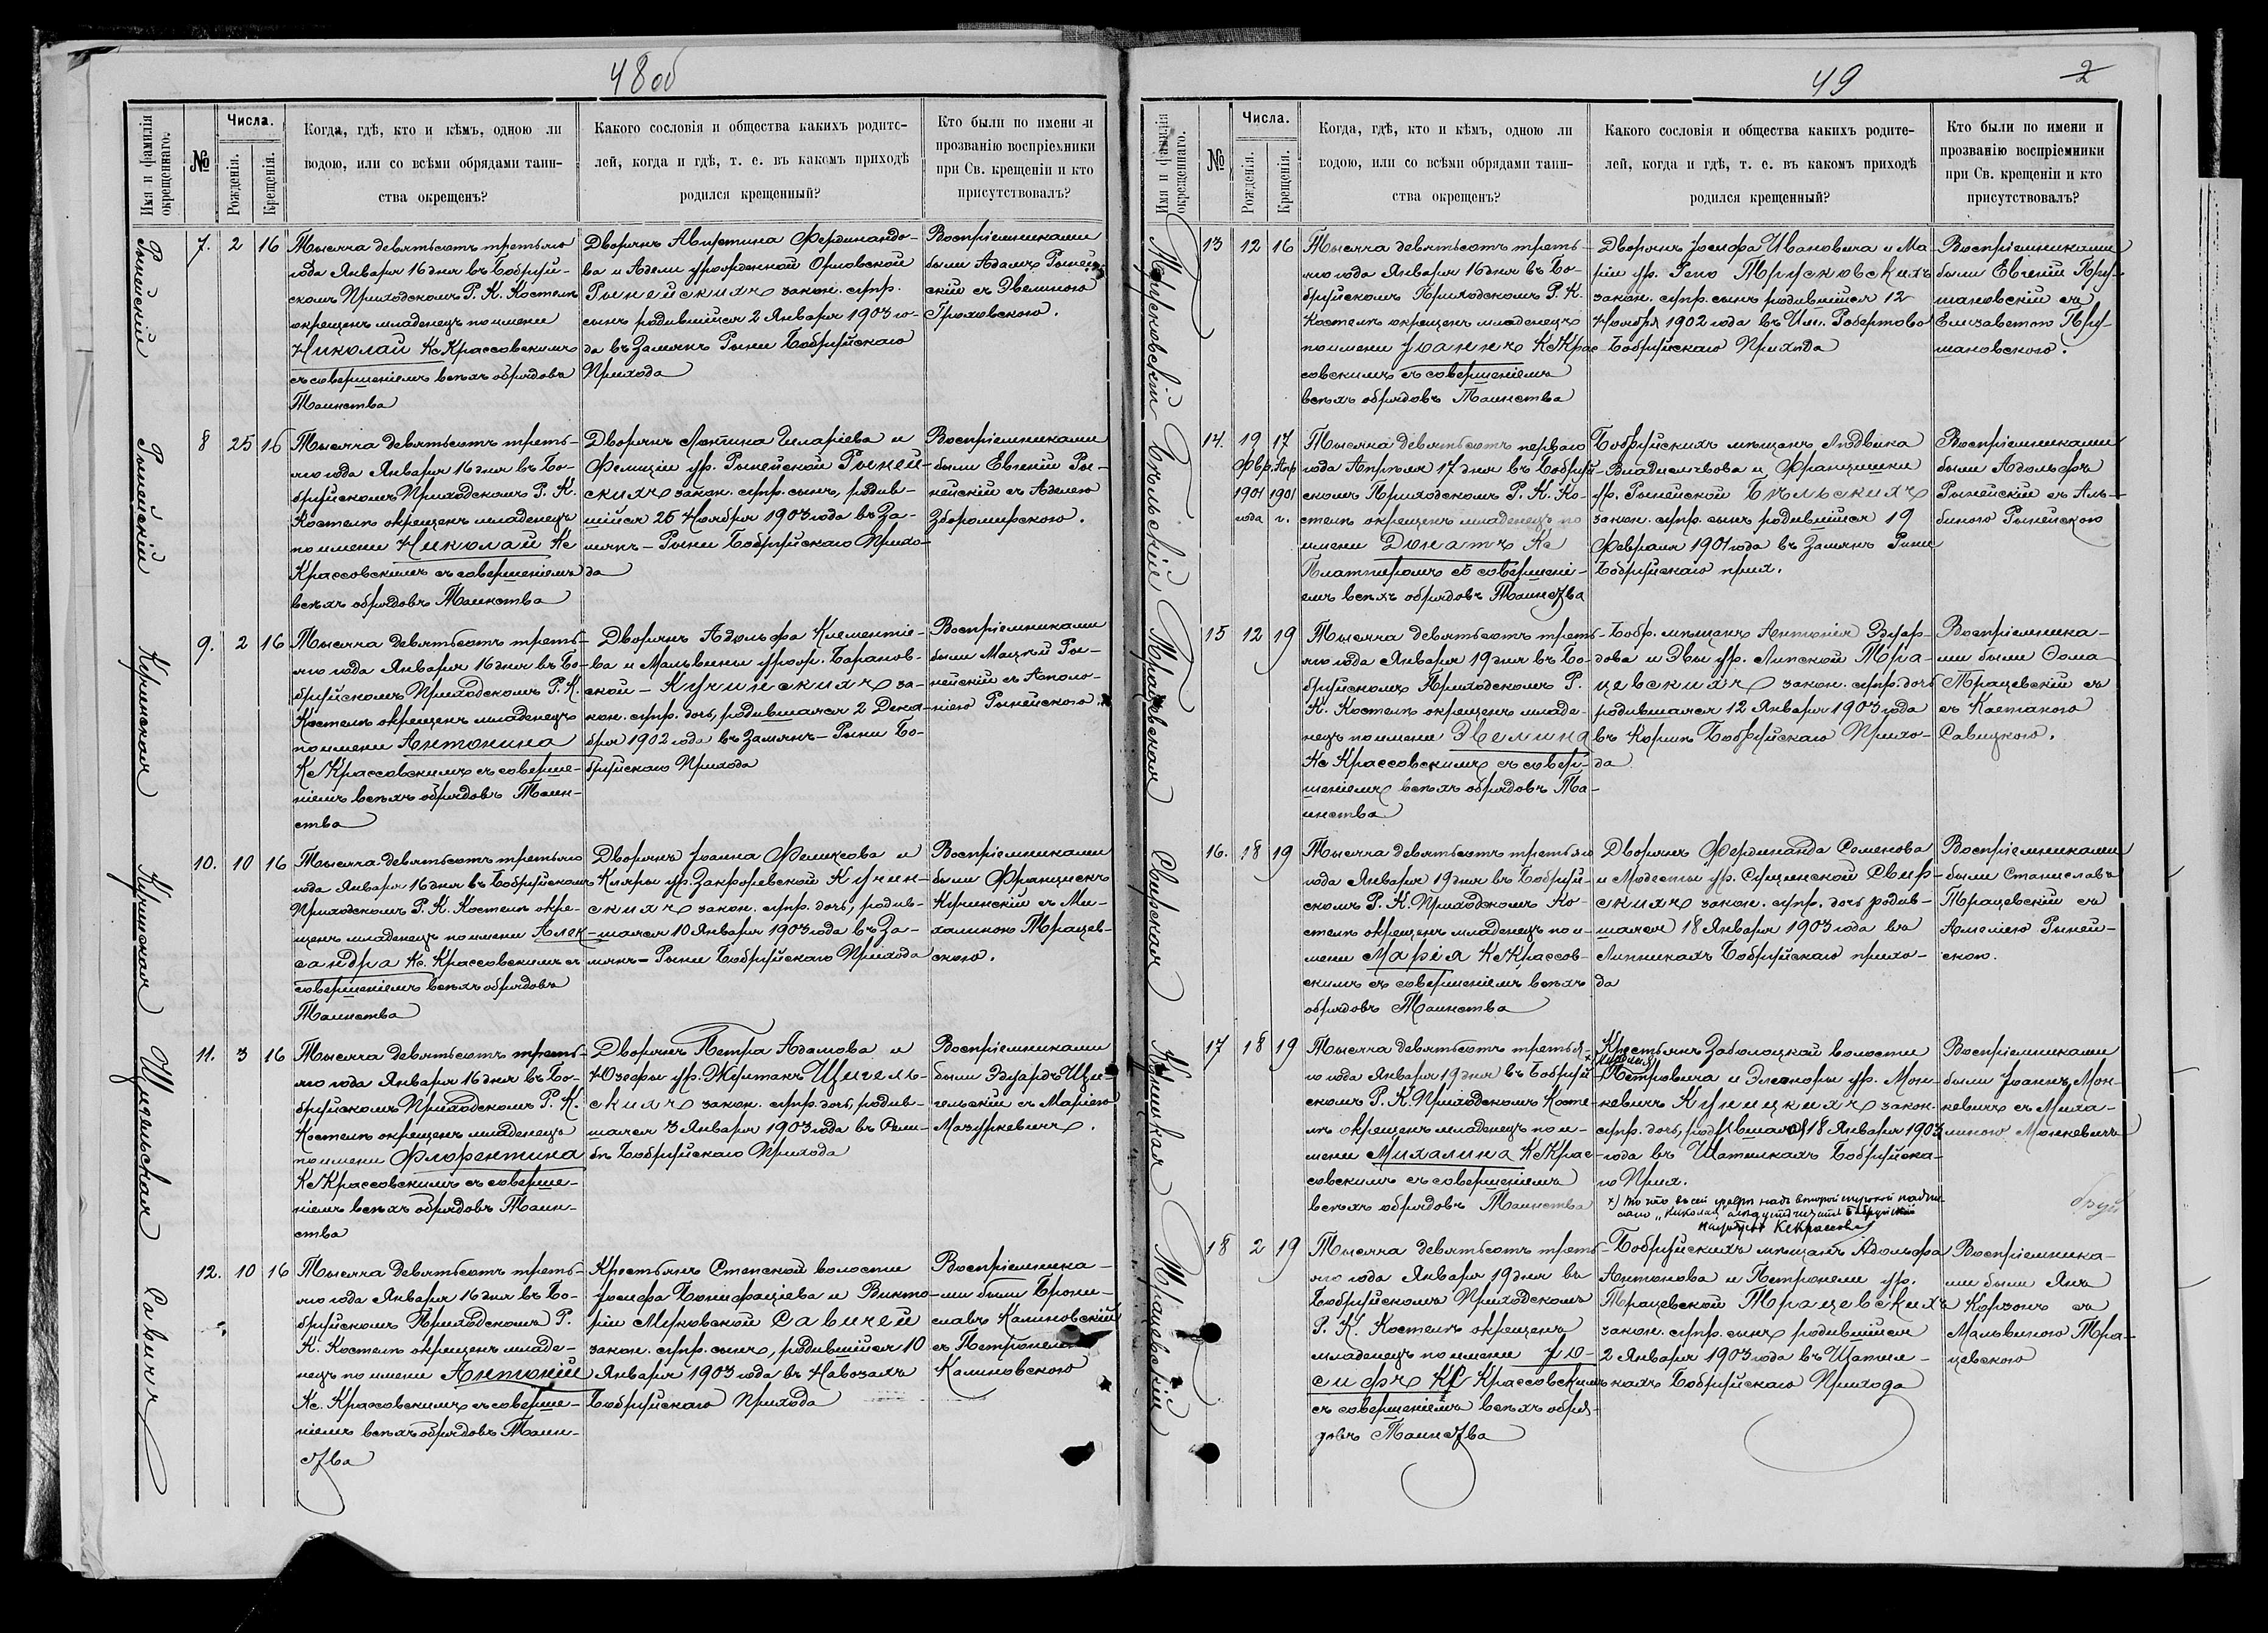 48об
Имя и фамилія окрещеннаго.
№
Числа.
Рожденія.
Крещенія.
Когда, гдѣ, кто и кѣмъ, одною ли
водою, или со всѣми обрядами таин-
ства окрещенъ?
Какого сословія и общества какихъ родите-
лей, когда и гдѣ, т. е. въ какомъ приходѣ
родился крещенный?
Кто были по имени и
прозванію воспріемники
при Св. крещеніи и кто
присутствовалъ?
Рынейскій
7. 2 16
Тысяча девятьсотъ третьяго
года Января 16 дня въ Бобруй-
скомъ Приходскомъ Р. К. Костелѣ
окрещенъ младенецъ по имени
Николай Кс Крассовскимъ
съ совершеніемъ всѣхъ обрядовъ
Таинства
Дворянъ Августина Фердинандо-
ва и Адели урожденной Орловской
Рынейскихъ закон. супр.
сынъ родившійся 2 Января 1903 го-
да въ Замянѣ Рыни Бобруйскаго
Прихода
Воспріемниками
были Адамъ Рыней-
скій съ Эвелиною
Гроховскою.
Рынейскій
8 25 16
Тысяча девятьсотъ треть-
яго года Января 16 дня въ Бо-
бруйскомъ Приходскомъ Р. К.
Костелѣ окрещенъ младенецъ
по имени Николай Кс
Крассовскимъ съ совершеніемъ
всѣхъ обрядовъ Таинства
Дворянъ Лонгина Иларіева и
Фелиціи ур. Рынейской Рыней-
скихъ закон. супр. сынъ, родив-
шійся 25 Ноября 1903 года въ За-
мянѣ-Рыни Бобруйскаго Прихо-
да
Воспріемниками
были Евгеній Ры-
нейскій съ Аделею
Здромирскою.
Кучинская
9. 2 16
Тысяча девятьсотъ треть-
яго года Января 16 дня въ Бо-
бруйскомъ Приходскомъ Р. К.
Костелѣ окрещенъ младенецъ
по имени Антонина
Кс Крассовскимъ съ соверше-
ніемъ всѣхъ обрядовъ Таин-
ства
Дворянъ Адольфа Клементіе-
ва и Мальвины урож. Баранов-
ской - Кучинскихъ за-
кон. супр. дочь, родившаяся 2 Дека-
бря 1902 года въ Замянѣ-Рыни Бо-
бруйскаго Прихода
Воспріемниками
были Мацѣй Ры-
нейскій съ Аполо-
ніею Рынейскою.
Кучинская
10. 10 16
Тысяча девятьсотъ третьяго
года Января 16 дня въ Бобруйскомъ
Приходскомъ Р. К. Костелѣ окре-
щенъ младенецъ по имени Алек-
сандра Кс. Крассовскимъ съ
совершеніемъ всѣхъ обрядовъ
Таинства
Дворянъ Іоанна Феликсова и
Кляры ур. Закржевской Кучин-
скихъ закон. супр. дочь, родив-
шаяся 10 Января 1903 года въ За-
мянѣ-Рыни Бобруйскаго Прихода
Воспріемниками
были Францискъ
Кучинскій съ Ми-
халиною Трацев-
скою.
Щигельская
11. 3 16
Тысяча девятьсотъ треть-
яго года Января 16 дня въ Бо-
бруйскомъ Приходскомъ Р. К.
Костелѣ окрещенъ младенецъ
по имени Флорентина
Кс Крассовскимъ съ соверше-
ніемъ всѣхъ обрядовъ Таин-
ства
Дворянъ Петра Адамова и
Юзефы ур. Жултакъ Щигель-
скихъ закон. супр. дочь, родив-
шаяся 3 Января 1903 года въ
Бобруйскаго Прихода
Воспріемниками
были Эдуардъ Щи-
гельскій съ Маріею
Мазуркевичъ.
Савичъ
12. 10 16
Тысяча девятьсотъ треть-
яго года Января 16 дня въ Бо-
бруйскомъ Приходскомъ Р.
К. Костелѣ окрещенъ младе-
нецъ по имени Антоній
Кс. Крассовскимъ съ соверше-
ніемъ всѣхъ обрядовъ Таин-
ства
Крестьянъ Степской волости
Іосифа Бонифаціева и Викто-
ріи Савичей
закон. супр. сынъ, родившійся 10
Января 1903 года въ Навозахъ
Бобруйскаго Прихода
Воспріемника-
ми были Брони-
славъ Калиновскій
съ Петронелею
Калиновскою
49
2
Имя и фамилія окрещеннаго.
№
Числа.
Рожденія.
Крещенія.
Когда, гдѣ, кто и кѣмъ, одною ли
водою, или со всѣми обрядами таин-
ства окрещенъ?
Какого сословія и общества какихъ родите-
лей, когда и гдѣ, т. е. въ какомъ приходѣ
родился крещенный?
Кто были по имени и
прозванію воспріемники
при Св. крещеніи и кто
присутствовалъ?
Трусковскій
13 12 16
Тысяча девятьсотъ треть-
яго года Января 16 дня въ Бо-
бруйскомъ Приходскомъ Р. К.
Костелѣ окрещенъ младенецъ
по имени Іоаннъ Кс Крас-
совскимъ съ совершеніемъ
всѣхъ обрядовъ Таинства
Дворянъ Іосифа Ивановича и Ма-
ріи ур. Репо Трусковскихъ
закон. супр. сынъ родившійся 12
Ноября 1902 года въ Им. Робертово
Бобруйскаго Прихода
Воспріемниками
были Евгеній Пру-
шановскій съ
Елизаветою Пру-
шановскою.
Бѣльскій
14. 19 Февр. 1901 года 17 Апр. 1901 г.
Тысяча девятьсотъ перваго
года Апрѣля 17 дня въ Бобруй-
скомъ Приходскомъ Р. К. Ко-
стелѣ окрещенъ младенецъ по
имени Донатъ Кс
Платтеромъ съ совершені-
емъ всѣхъ обрядовъ Таинства
Бобруйскихъ мѣщанъ Людвика
Владиславова и Францишки
ур. Рынейской Бѣльскихъ
закон. супр. сынъ родившійся 19
Февраля 1901 года въ Замянѣ Рыни
Бобруйскаго прих.
Воспріемниками
были Адольфъ
Рынейскій съ Аль-
биною Рынейскою
Трацевская
15 12 19
Тысяча девятьсотъ треть-
яго года Января 19 дня въ Бо-
бруйскомъ Приходскомъ Р.
К. Костелѣ окрещенъ младе-
нецъ по имени Эвелина
Кс Крассовскимъ съ совер-
шеніемъ всѣхъ обрядовъ Та-
инства
Бобр. мѣщанъ Антонія Эдуар-
дова и Эвы ур. Липской Тра-
цевскихъ закон. супр. дочь
родившаяся 12 Января 1903 года
въ Бобруйскаго Прихо-
да
Воспріемника-
ми были Ѳома
Трацевскій съ
съ Каетаною
Савицкою.
Свирская
16. 18 19
Тысяча девятьсотъ третьяго
года Января 19 дня въ Бобруй-
скомъ Р. К. Приходскомъ Ко-
стелѣ окрещенъ младенецъ по и-
мени Марія Кс Крассов-
скимъ съ совершеніемъ всѣхъ
обрядовъ Таинства
Дворянъ Фердинанда Семенова
и Модесты ур. Сущинской Свир-
скихъ закон. супр. дочь родив-
шаяся 18 Января 1903 года въ
Липникахъ Бобруйскаго прихо-
да
Воспріемниками
были Станиславъ
Трацевскій съ
Амеліею Рыней-
скою.
Куницкая
17 18 19
Тысяча девятьсотъ третья-
го года Января 19 дня въ Бобруй-
скомъ Р. К. Приходскомъ Косте-
лѣ окрещенъ младенецъ по и-
мени Михалина Кс Крас-
совскимъ съ совершеніемъ
всѣхъ обрядовъ Таинства
Крестьянъ Заболоцкой волости
х Николая
Петровича и Элеоноры ур. Мон-
кевичъ Куницкихъ закон.
супр. дочь, родившаяся 18 Января 1903
года въ Шатилкахъ Бобруйска-
го Прих.
х) что въ сей графѣ надъ второй строкой надпи-
сано „Николая"
Кс Крассовскій
Воспріемниками
были Іоаннъ Мон-
кевичъ съ Миха-
линою Монкевичъ
Трацевскій
18 2 19
Тысяча девятьсотъ треть-
яго года Января 19 дня въ
Бобруйскомъ Приходскомъ
Р. К. Костелѣ окрещенъ
младенецъ по имени Іо-
сифъ Кс Крассовскимъ
съ совершеніемъ всѣхъ обря-
довъ Таинства
Бобруйскихъ мѣщанъ Адольфа
Антонова и Петронели ур.
Трацевской Трацевскихъ
закон. супр. сынъ родившійся
2 Января 1903 года въ Шатил-
кахъ Бобруйскаго Прихода
Воспріемника-
ми были Янъ
Корзонъ съ
Мальвиною Тра-
цевскою